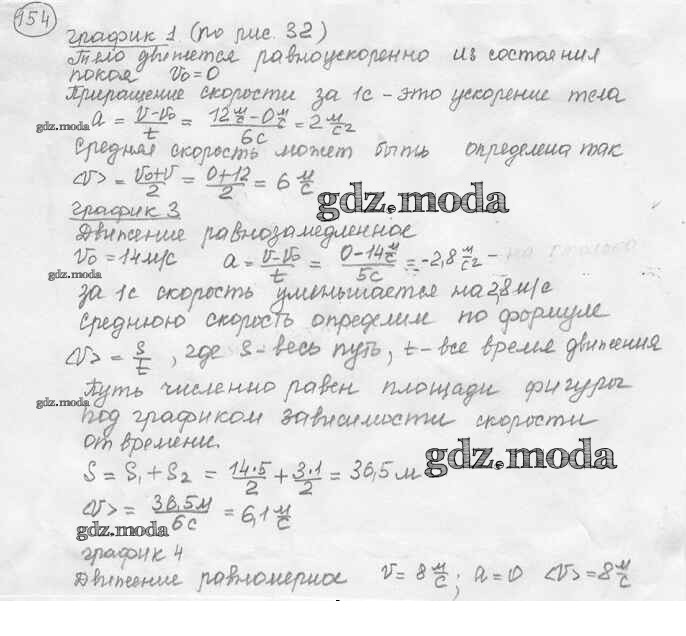 154
График 1 (по рис. 32)
Тело движется равноускоренно из состояния
покоя V₀=0
Приращение скорости за 1с - это ускорение тела
gdz.moda
a = (V-V₀)/t = (12 м/с - 0 м/с)/6с = 2 м/с²
Средняя скорость может быть определена так
<V> = (V₀+V)/2 = (0+12)/2 = 6 м/с
gdz.moda
График 3
Движение равнозамедленное
V₀ = 14м/с a = (V-V₀)/t = (0-14 м/с)/5с = -2,8 м/с²
За 1с скорость уменьшается на 2,8 м/с
Среднюю скорость определим по формуле
<V> = S/t, где S - весь путь, t - все время движения
Путь численно равен площади фигуры
gdz.moda
под графиком зависимости скорости
от времени.
S = S₁ + S₂ = (14·5)/2 + (3·1)/2 = 36,5 м
gdz.moda
<V> = 36,5м/6с = 6,1 м/с
gdz.moda
График 4
Движение равномерное V = 8 м/с; a = 0 <V> = 8 м/с